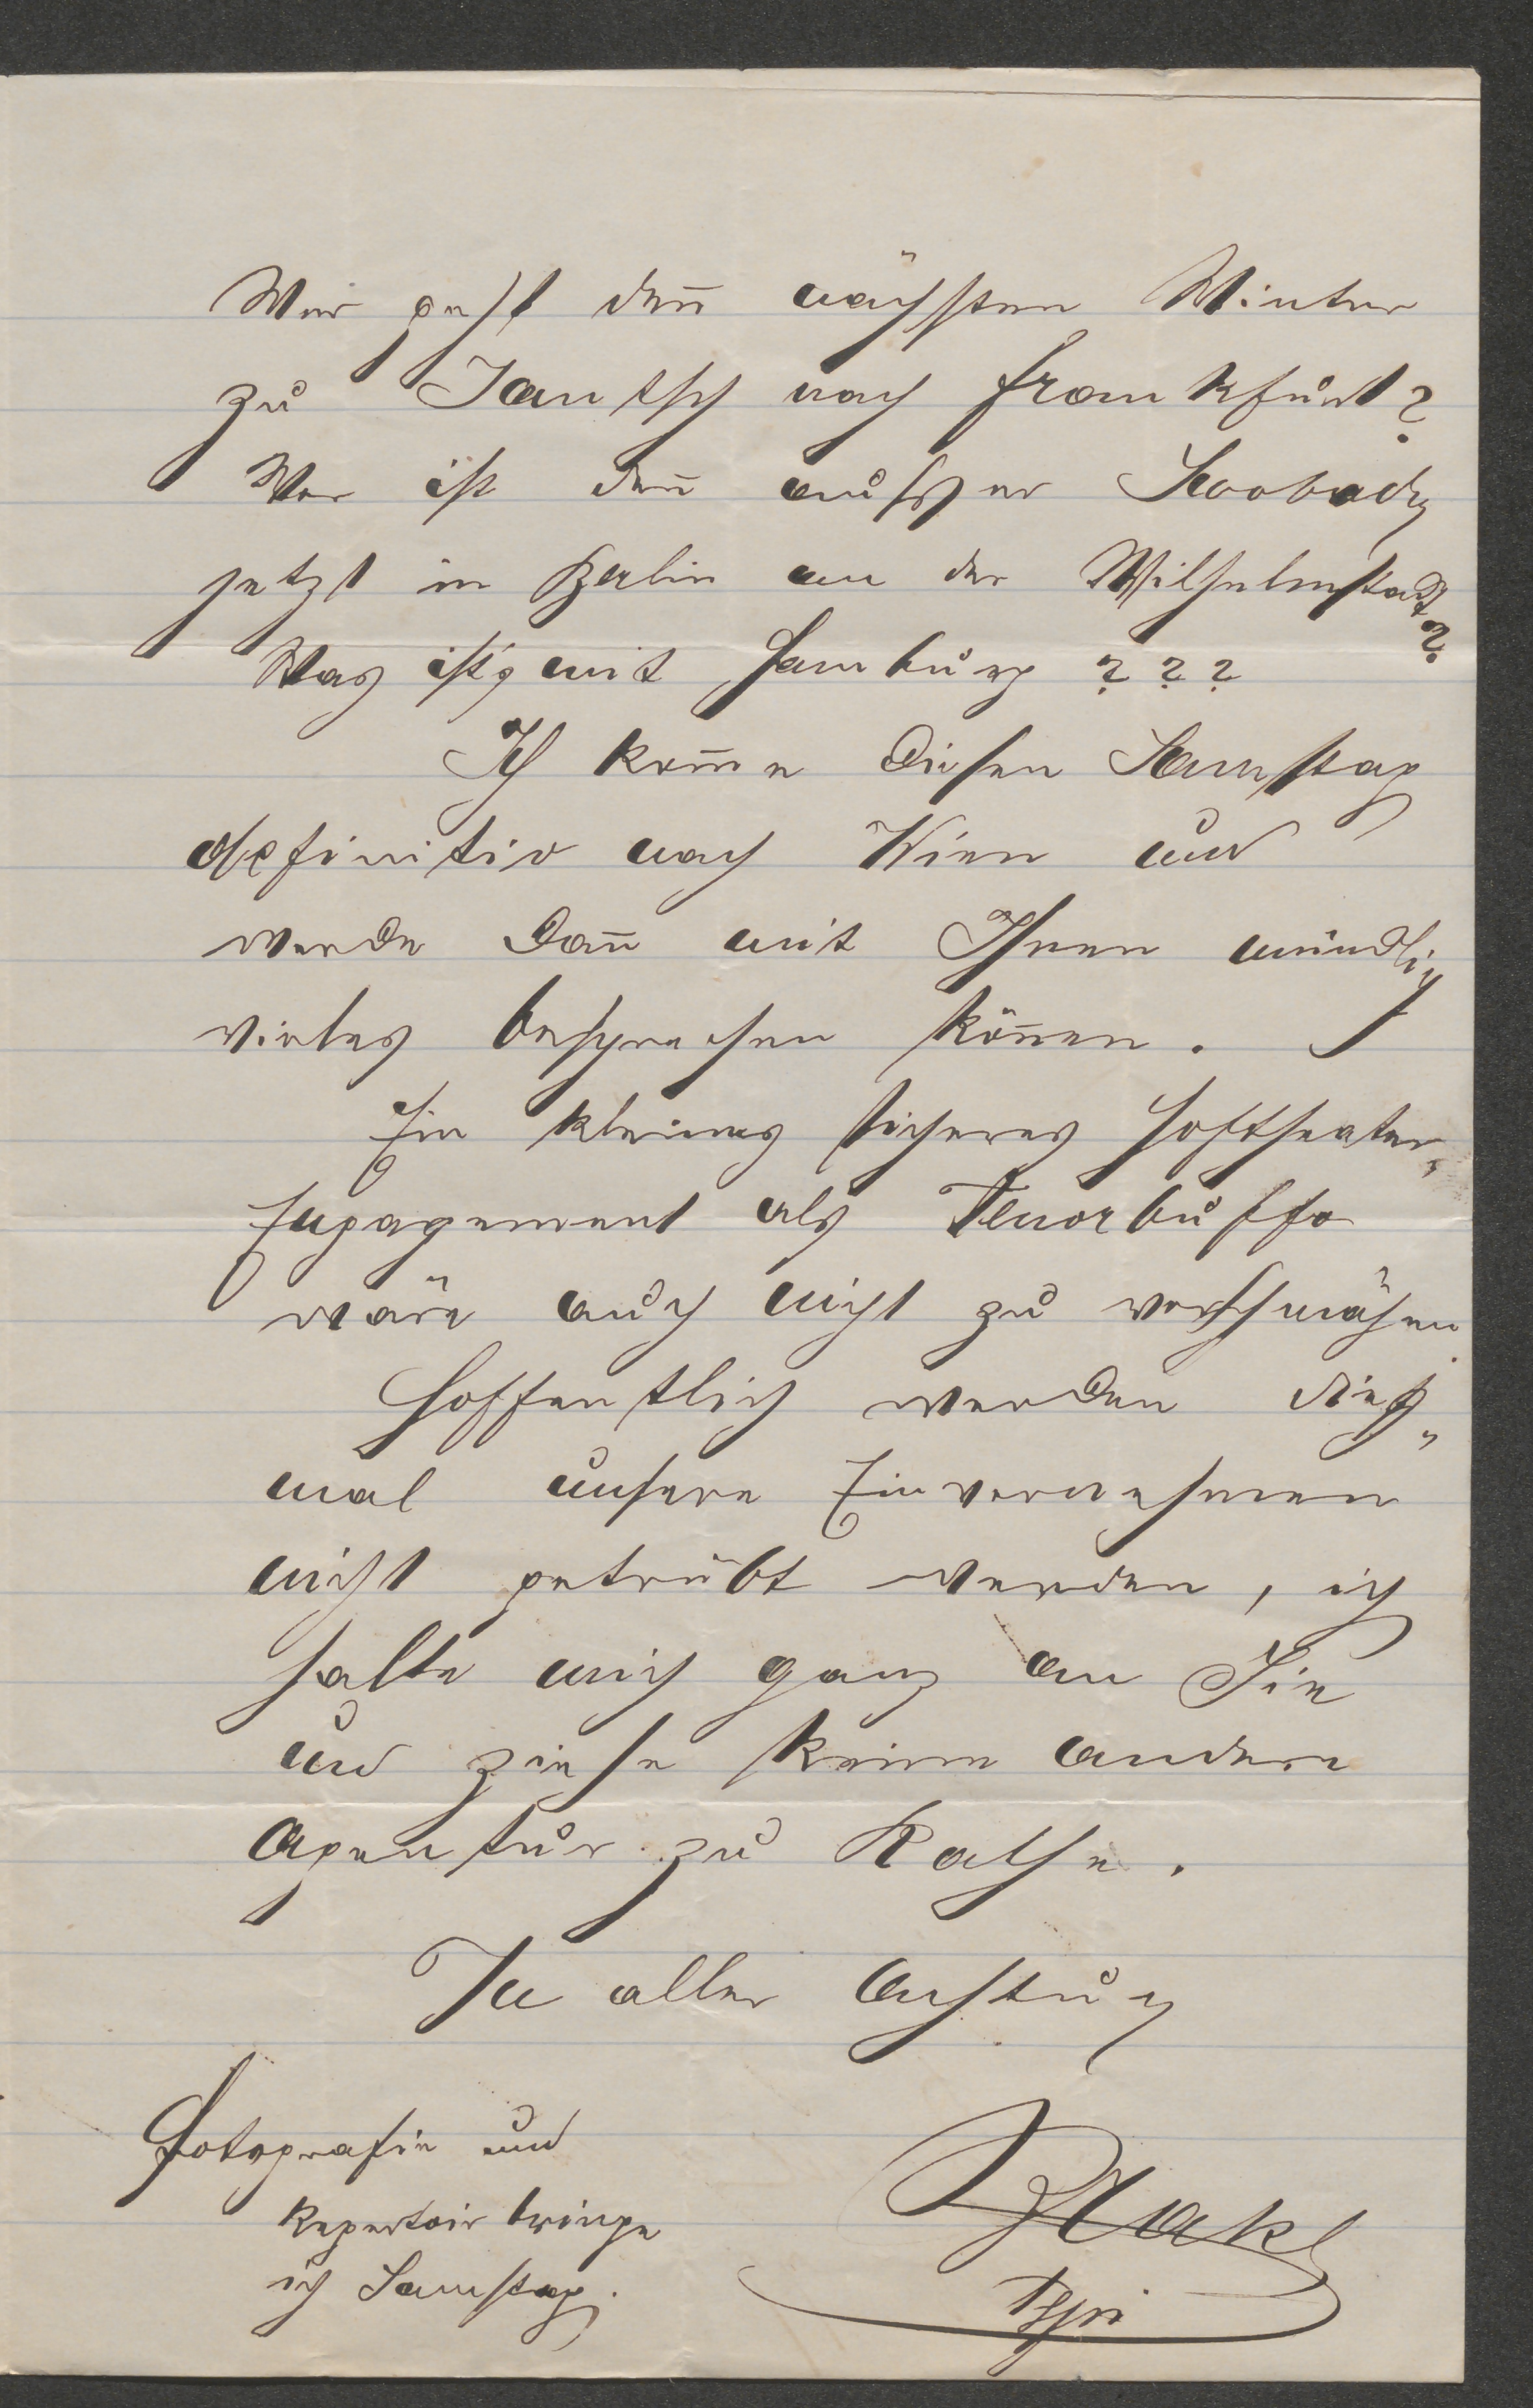 Wer geht den̄ nächsten Winter
zu Jantsch nach Frankfurt?
Wer ist den̄ außer Swobody
jetzt in Berlin an der Wilhelmstadt?
Was ist's mit Hamburg ???
Ich kom̄e diesen Samstag
definitiv nach Wien und
werde dan̄ mit Ihnen mündlich
vieles besprechen kön̄en.
Ein kleines sicheres Hoftheater„
Engagement als Tenorbuffo
wäre auch nicht zu verschmähen
Hoffentlich werden dieß„
mal unsere Einvernehmen
nicht getrübt werden, ich
halte mich ganz an Sie
und ziehe keine andere
Agentur zu Rathe.
In aller Achtung
Fotografie und
Repertoir bringe
ich Samstag.